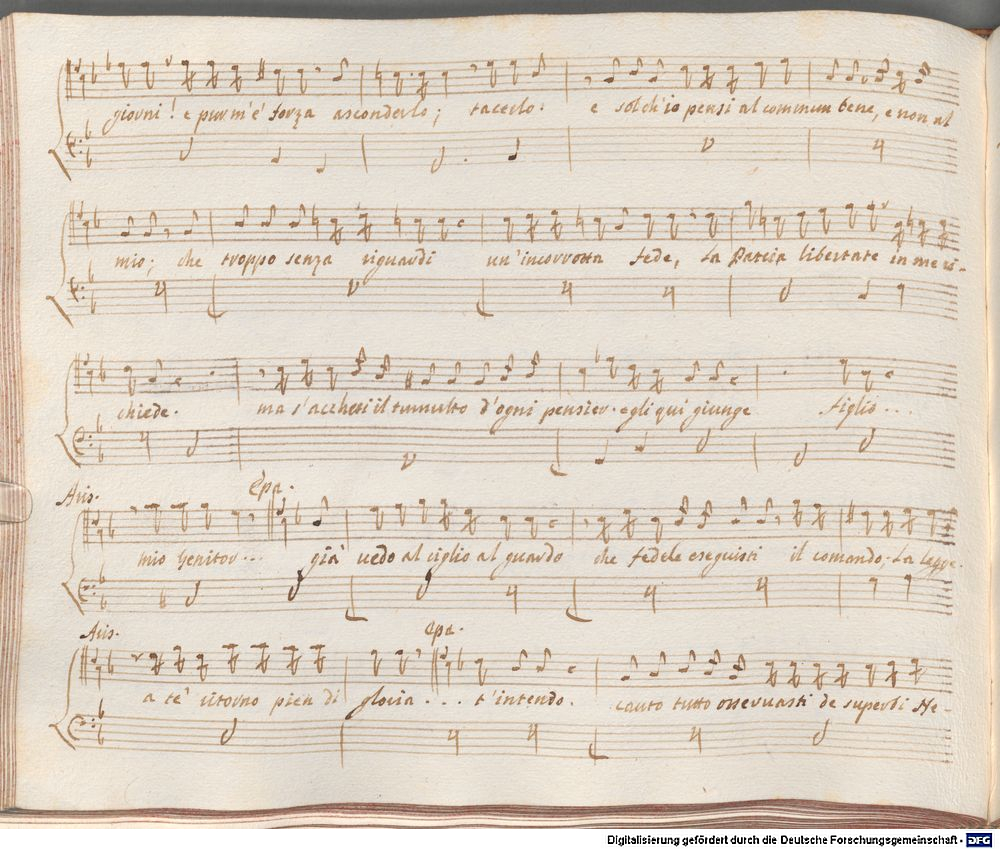 giorni! e pur m'e' forza asconderlo; tacerlo: e sol ch'io pensi al commun bene, e non al
mio; che troppo senza riguardi un'incorrotta fede, la Patria libertate in me ri-
chiede. ma s'accheti il tumulto d'ogni pensier. egli qui giunge figlio...
Aris. Epa.
mio Genitor... già uedo al ciglio al guardo che fedele eseguisti il comando; La legge.
Aris. Epa.
a te' ritorno pien di gloria... t'intendo. cauto tutto osseruasti de superbi Ne-
Digitalisierung gefördert durch die Deutsche Forschungsgemeinschaft - DFG